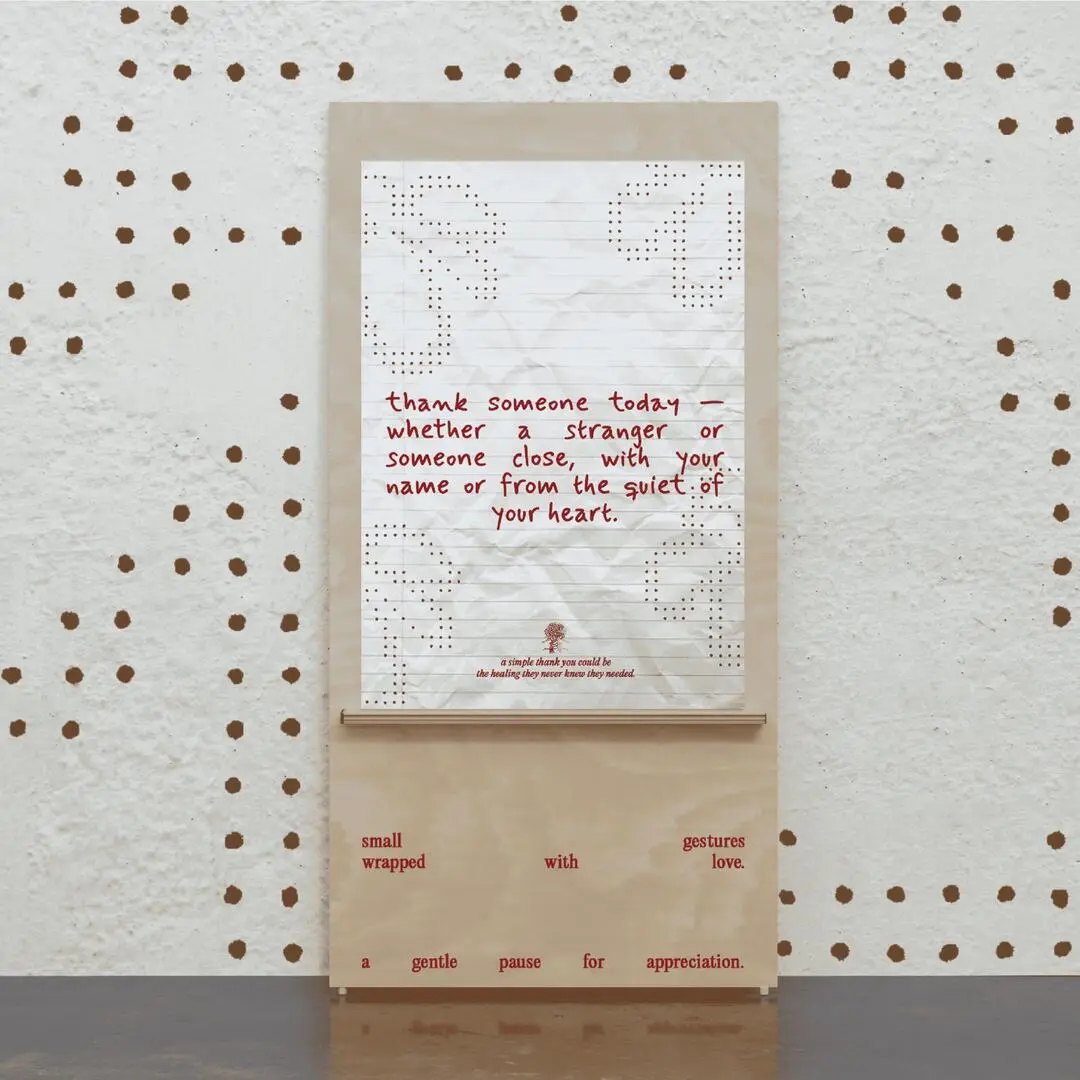 thank someone today —
whether a stranger or
someone close, with your
name or from the quiet of
your heart.
a simple thank you could be
the healing they never knew they needed.
small gestures
wrapped with love.
a gentle pause for appreciation.